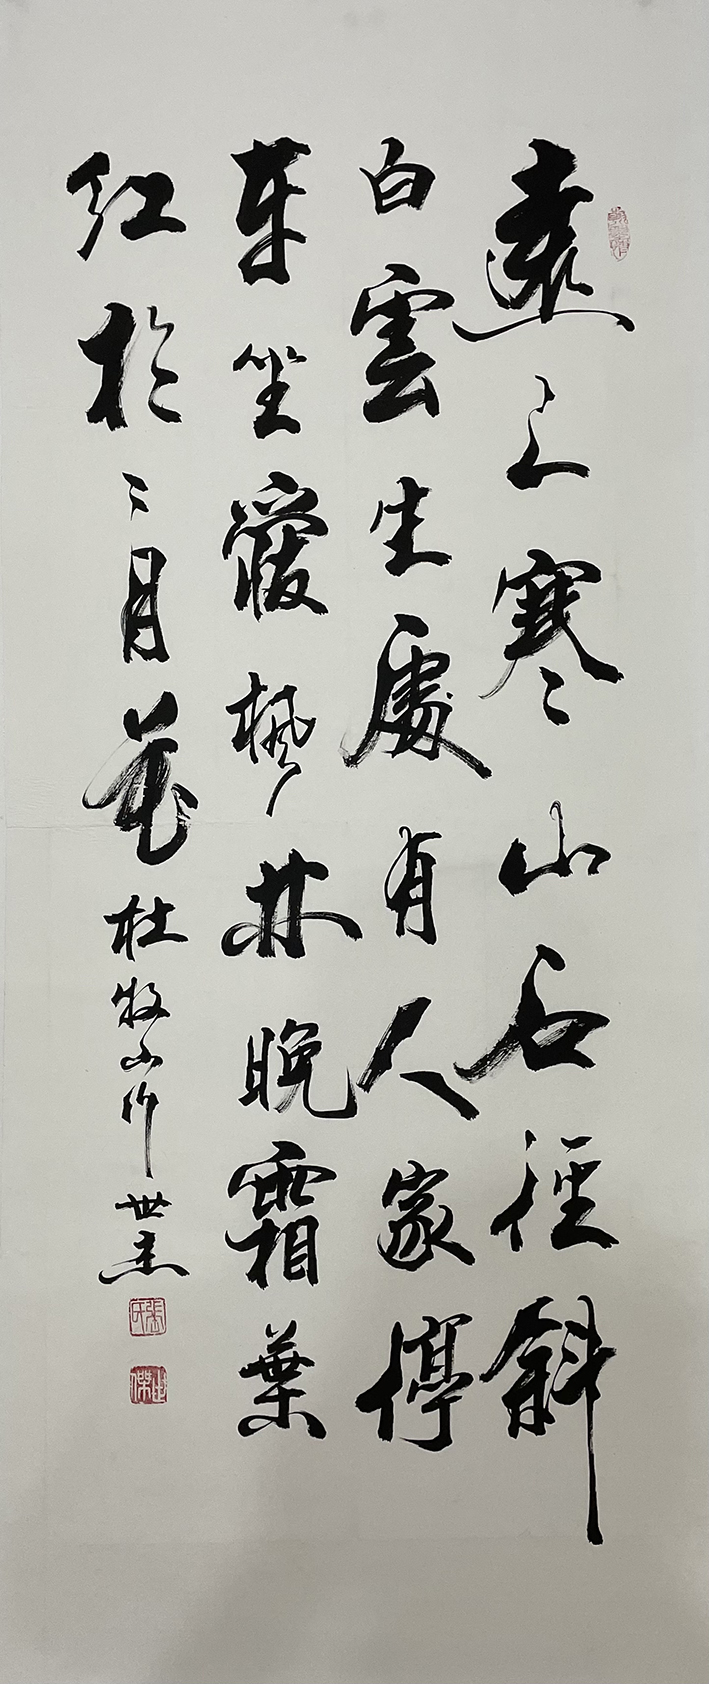 遠上寒山石徑斜
白雲生處有人家停
車坐愛楓林晚霜葉
紅於二月花杜牧山行世杰
張氏
世傑